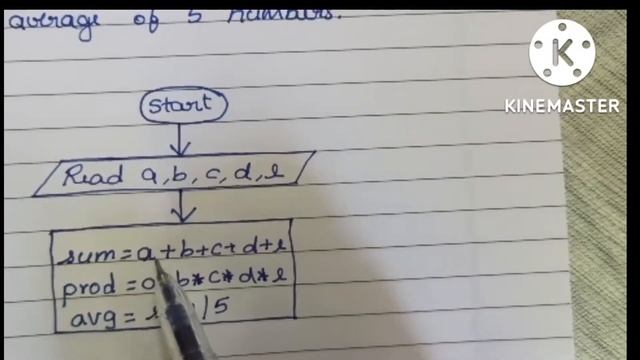 average of 5 numbers.
K
KINEMASTER
Start
Read a, b, c, d, e
sum = a + b + c + d + e
prod = b * c * d * e
avg = / 5